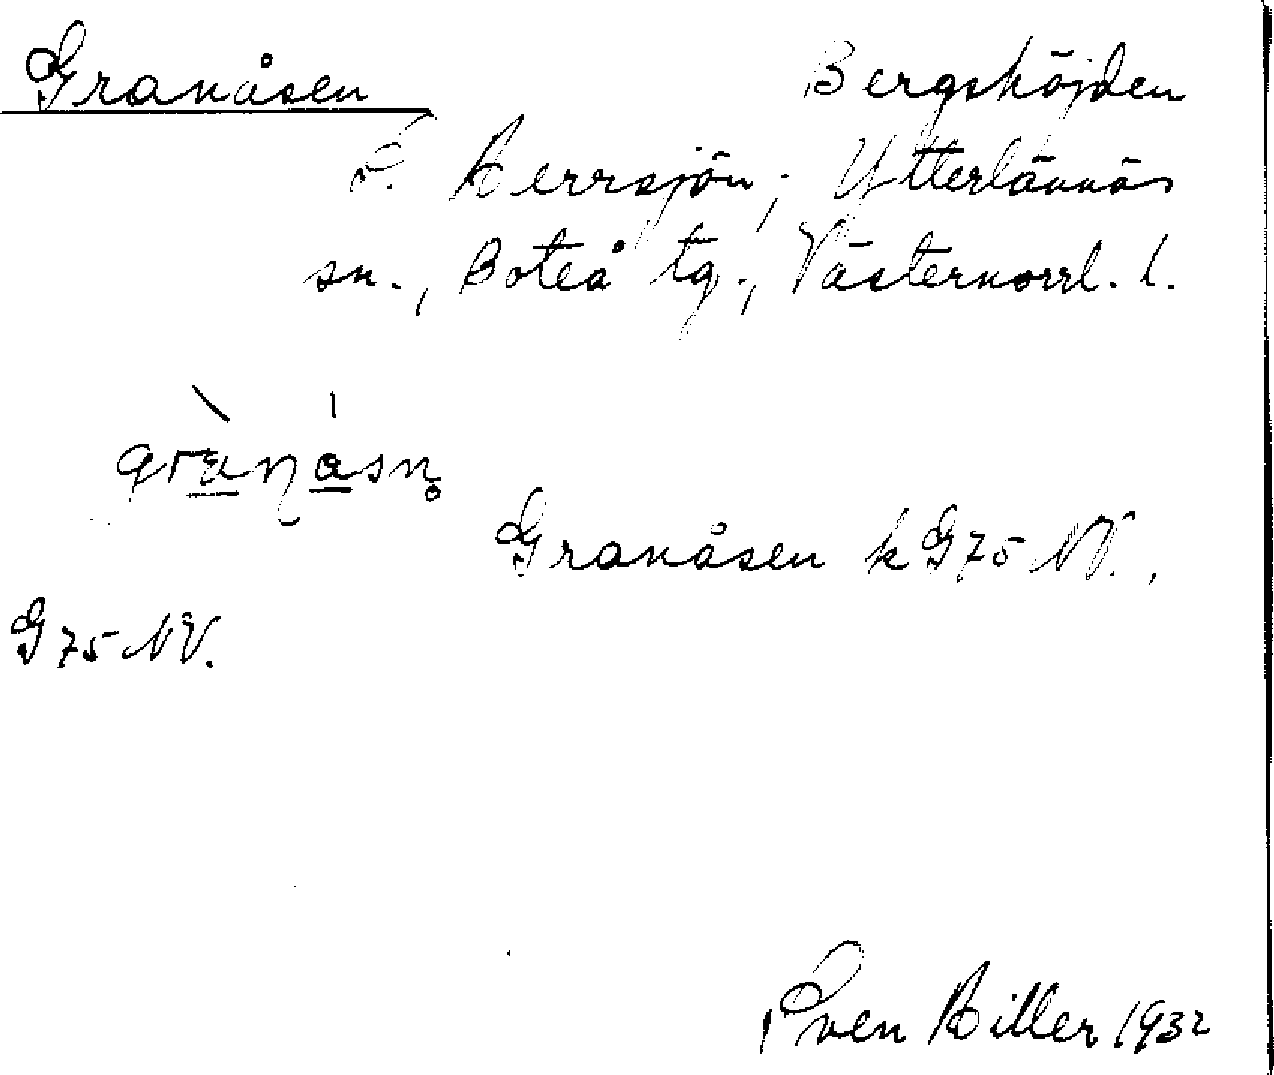 Granåsen Bergshöjden
S. Herrsjön, Ytterlännäs
sn., Boteå tg., Västernorrl. l.
grànásn̥
Granåsen k G75 NV.,
G 75 NV.
Sven Hiller 1932